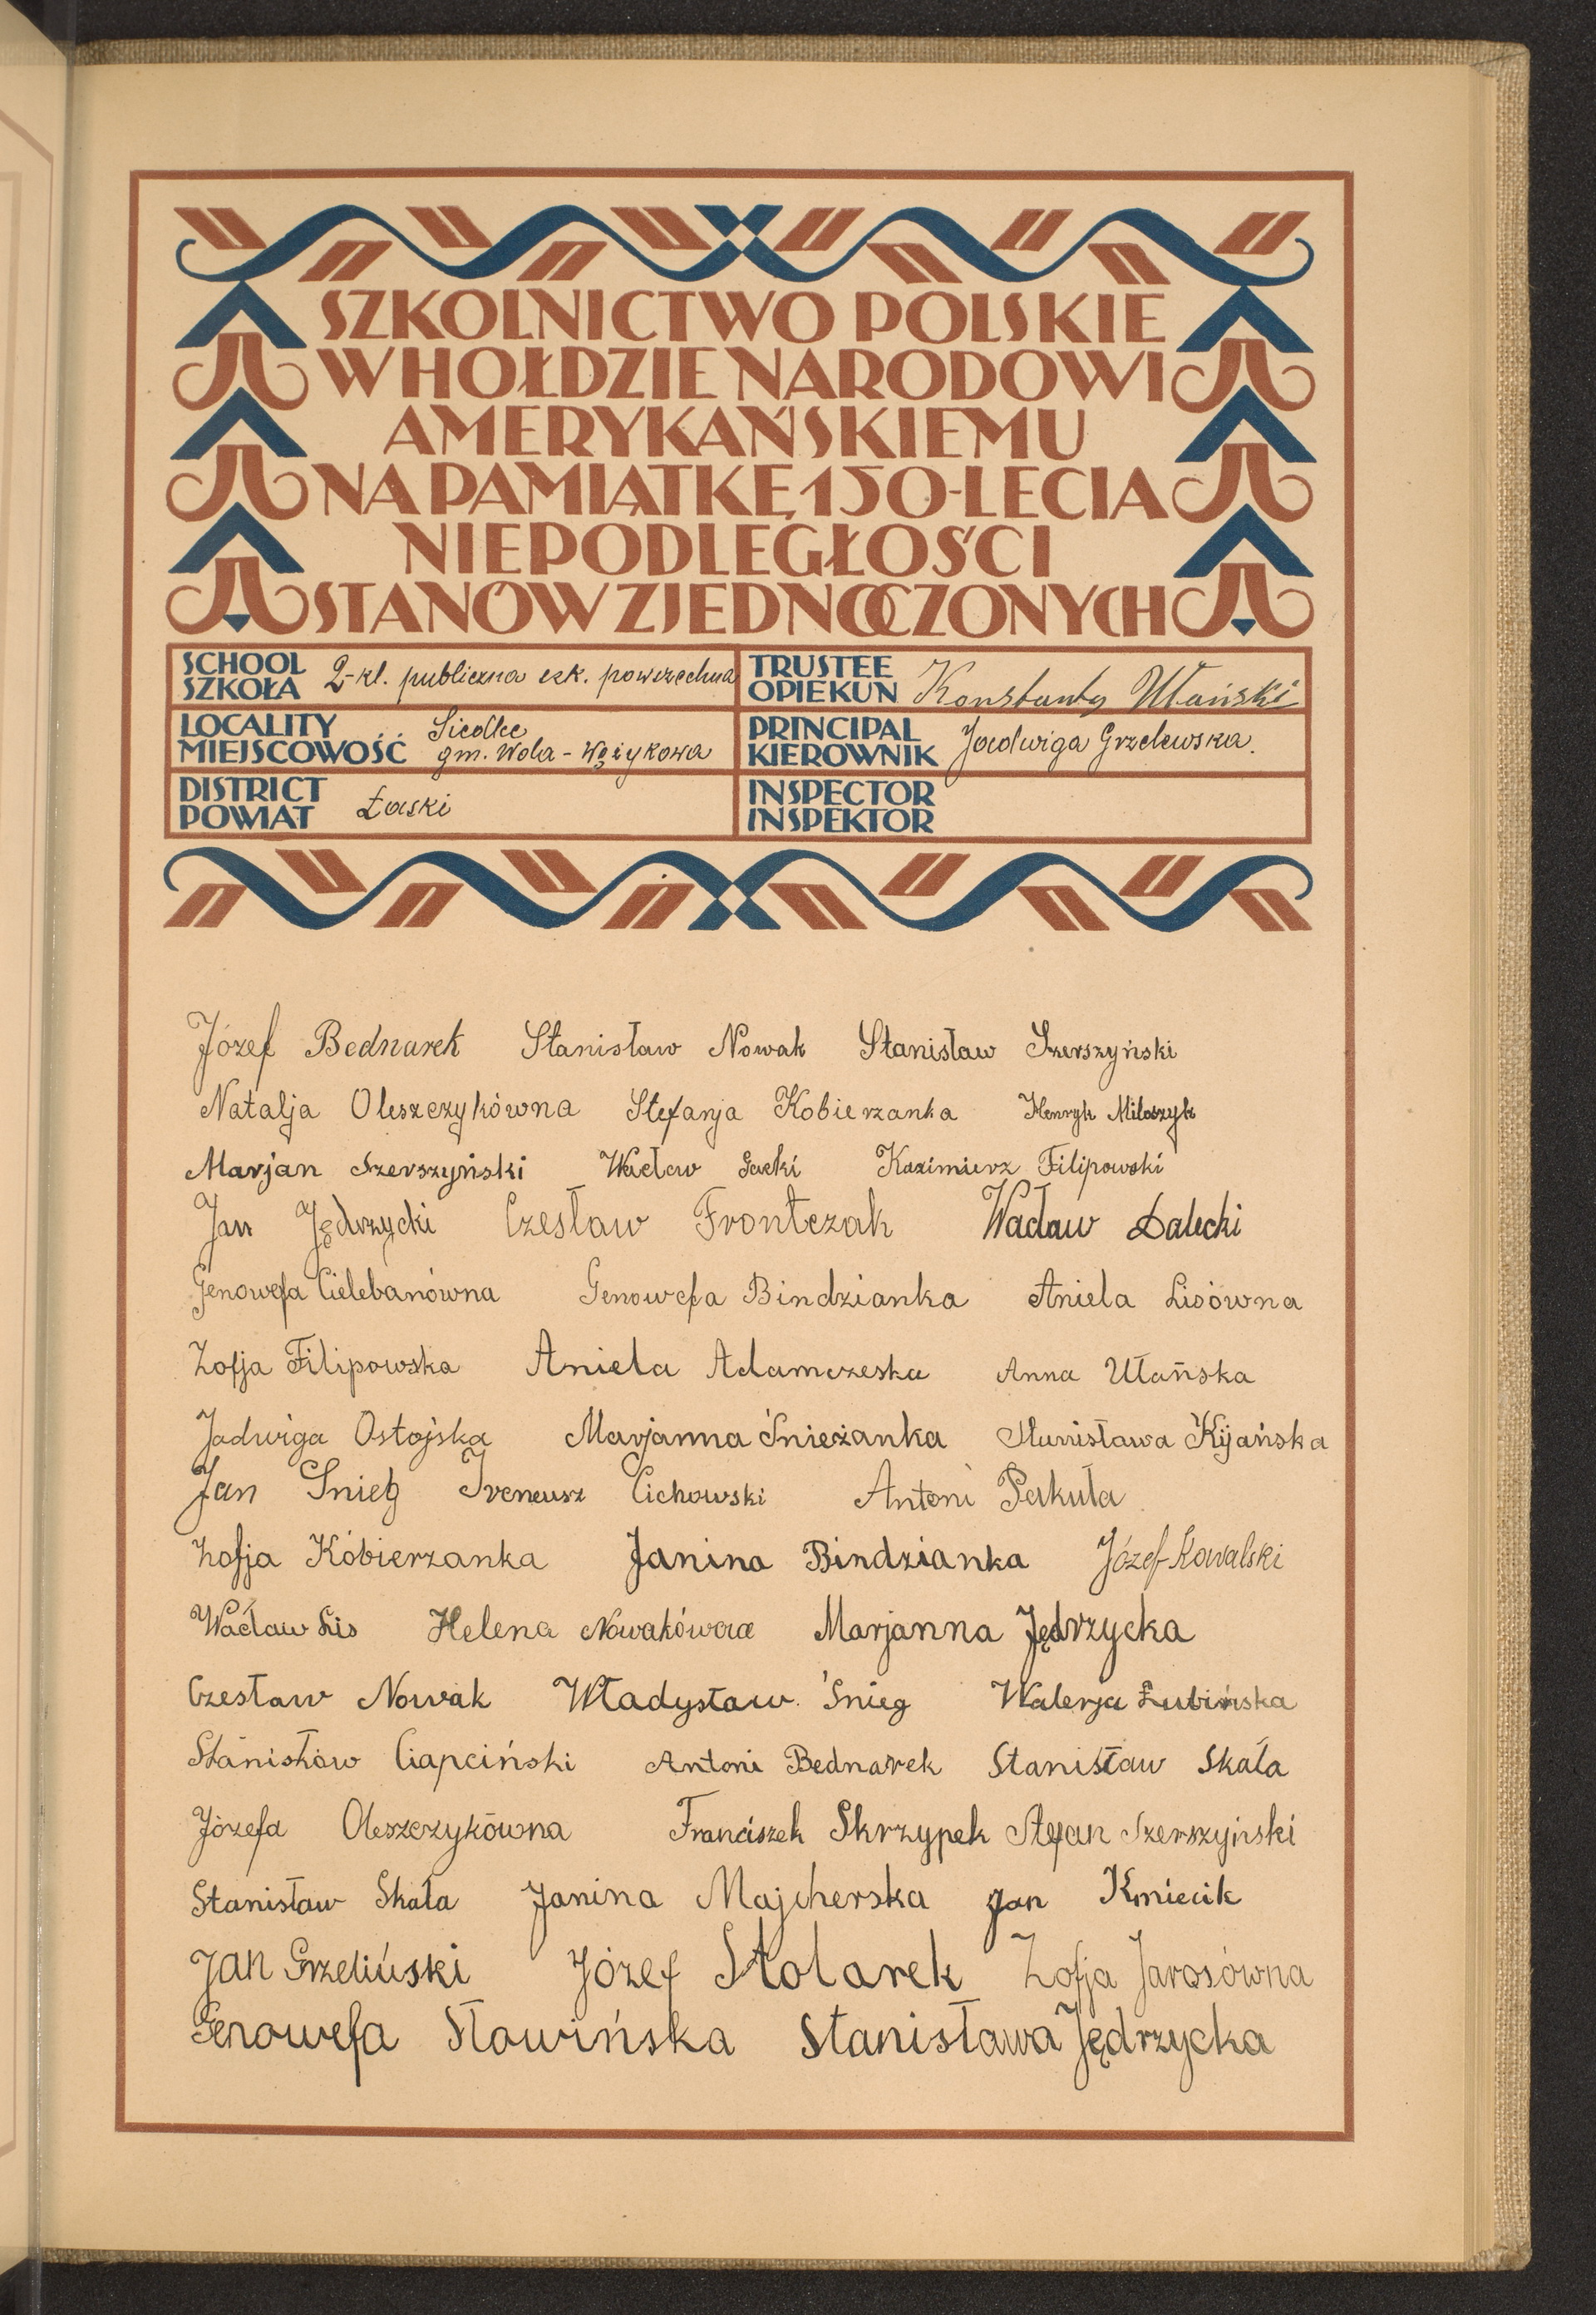 SZKOLNICTWO POLSKIE
W HOŁDZIE NARODOWI
AMERYKAŃSKIEMU
NA PAMIĄTKĘ 150-LECIA
NIEPODLEGŁOŚCI
STANÓW ZJEDNOCZONYCH
SCHOOL
SZKOŁA 2-kl. publiczna szk. powszechna
TRUSTEE
OPIEKUN Konstanty Ułański
LOCALITY Siedlce
MIEJSCOWOŚĆ gm. Wola-Wężykowa
PRINCIPAL
KIEROWNIK Jadwiga Grzelewska.
DISTRICT
POWIAT Łaski
INSPECTOR
INSPEKTOR
Józef Bednarek Stanisław Nowak Stanisław Szerszyński
Natalja Oleszczykówna Stefanja Kobierzanka Henryk Miloszyk
Marjan Szerszyński Wacław Gacki Kazimierz Filipowski
Jan Jędrzycki Czesław Frontczak Wacław Dalecki
Genowefa Cielebanówna Genowefa Bindzianka Aniela Lisówna
Zofja Filipowska Aniela Adamczeska Anna Ułańska
Jadwiga Ostojska Marjanna Śnieżanka Stanisława Kijańska
Jan Śnieg Ireneusz Cichowski Antoni Pakuła
Zofja Kóbierzanka Janina Bindzianka Józef Kowalski
Wacław Lis Helena Nowakówna Marjanna Jędrzycka
Czesław Nowak Władysław Śnieg Walerja Łubińska
Stanisłów Ciapciński Antoni Bednarek Stanisław Skała
Józefa Oleszczykówna Franciszek Skrzypek Stefan Szerszyński
Stanisław Skała Janina Majcherska Jan Kmiecik
Jan Grzeliński Józef Stolarek Zofja Jarosówna
Genowefa Słowińska Stanisława Jędrzycka